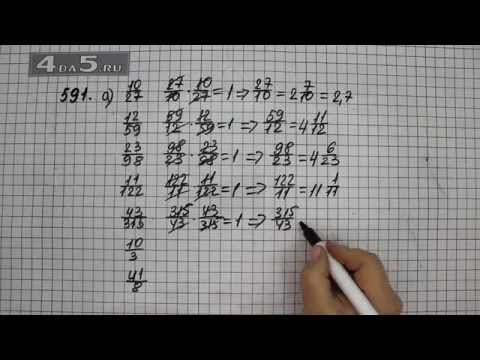 4DA5.RU
591. а) 10/27 27/10 · 10/27 = 1 => 27/10 = 2 7/10 = 2,7
12/59 59/12 · 12/59 = 1 => 59/12 = 4 11/12
23/98 98/23 · 23/98 = 1 => 98/23 = 4 6/23
11/122 122/11 · 11/122 = 1 => 122/11 = 11 1/11
43/315 315/43 · 43/315 = 1 => 315/43
10/3
41/8